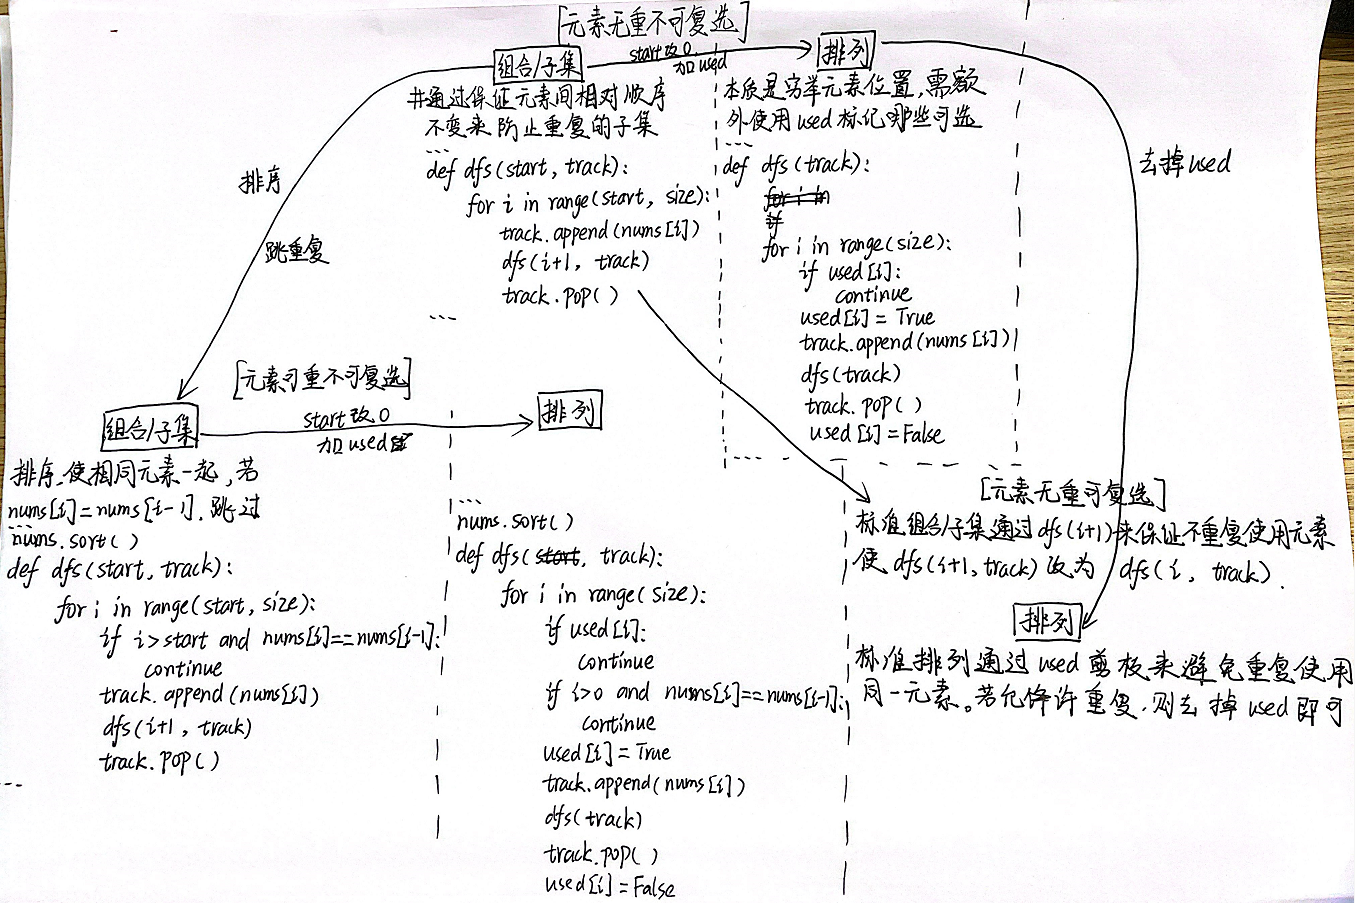 [元素无重不可复选]
组合/子集
start改0
加used
排列
#通过保证元素间相对顺序
不变来防止重复的子集
```
def dfs(start, track):
for i in range(start, size):
track.append(nums[i])
dfs(i+1, track)
track.pop()
```
本质是穷举元素位置,需额
外使用used标记哪些可选
```
def dfs(track):
for i in
if
for i in range(size):
if used[i]:
continue
used[i] = True
track.append(nums[i])
dfs(track)
track.pop()
used[i] = False
```
去掉used
排序
跳重复
[元素可重不可复选]
组合/子集
start改0
加used
排列
排序,使相同元素一起,若
nums[i]=nums[i-1],跳过
```
nums.sort()
def dfs(start, track):
for i in range(start, size):
if i>start and nums[i]==nums[i-1]:
continue
track.append(nums[i])
dfs(i+1, track)
track.pop()
```
```
nums.sort()
def dfs(start, track):
for i in range(size):
if used[i]:
continue
if i>0 and nums[i]==nums[i-1]:
continue
used[i] = True
track.append(nums[i])
dfs(track)
track.pop()
used[i] = False
[元素无重可复选]
标准组合/子集通过dfs(i+1)来保证不重复使用元素
使dfs(i+1, track)改为 dfs(i, track).
排列
标准排列通过used剪板来避免重复使用
同一元素。若允许重复,则去掉used即可